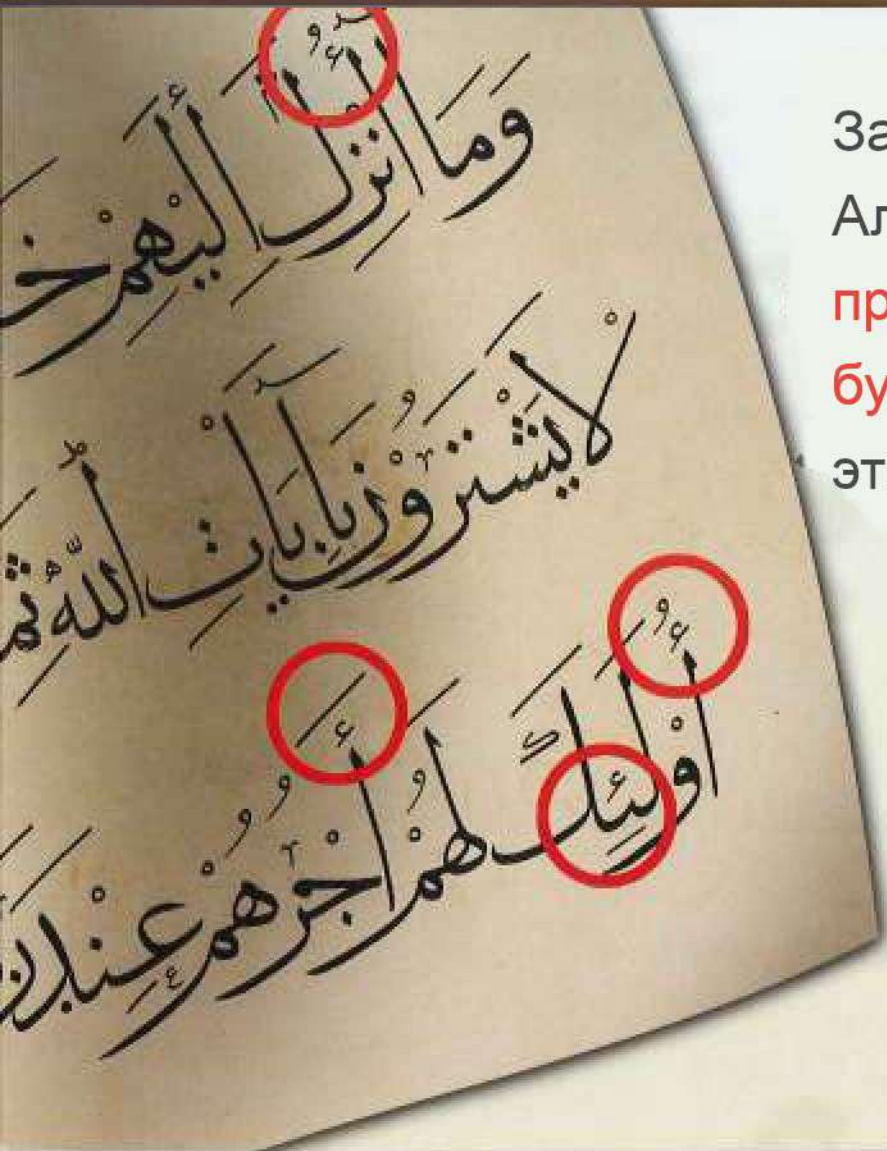 وَمَا أُنْزِلَ إِلَيْهِمْ
لَا يَشْتَرُونَ بِآيَاتِ اللّٰهِ
أُولَئِكَ لَهُمْ أَجْرُهُمْ عِنْدَ
За
Ал
пр
бу
эт